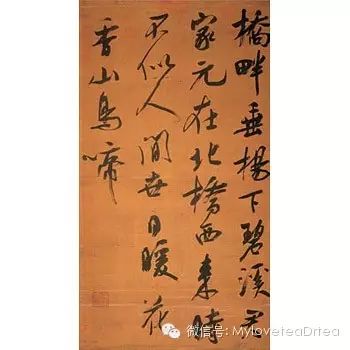 橋畔垂楊下碧溪君
家元在北橋西来時
不似人間世日暖花
香山鳥啼
微信号: MyloveteaDrtea